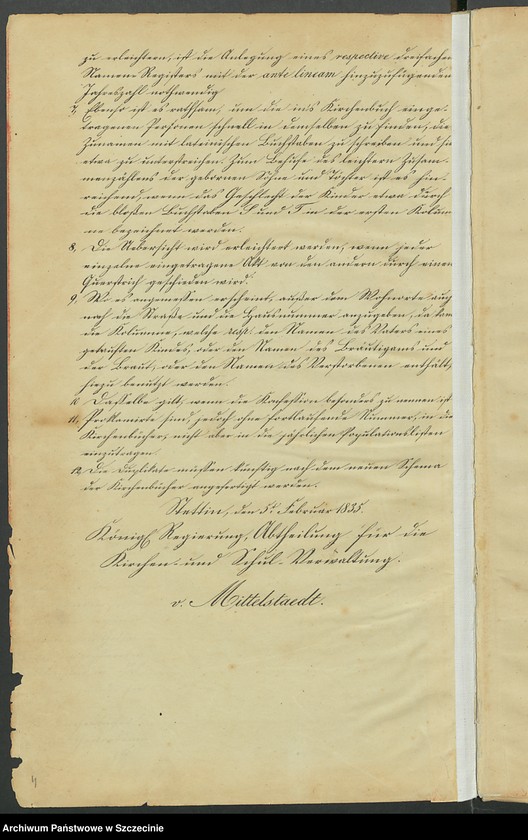 zu erleichtern, ist die Anlegung eines respective dreifachen
Namens-Registers mit der ante lineam hinzuzufügenden
Jahreszahl nothwendig
7, Ebenso ist es rathsam, um die ins Kirchenbuch einge-
tragenen Personen schnell in demselben zu finden, die
Zunamen mit lateinischen Buchstaben zu schreiben und sie
etwa zu unterstreichen. Zum Behufe des leichtern Zusam-
menzählens der gebornen Söhne und Töchter ist es hin-
reichend, wenn das Geschlecht der Kinder etwa durch
die bloßen Buchstaben S und T in der ersten Kolum-
ne bezeichnet werden.
8, Die Uebersicht wird erleichtert werden, wenn jeder
einzelne eingetragene Akt von den andern durch einen
Querstrich geschieden wird.
9, Wo es angemessen erscheint, außer dem Wohnorte auch
noch die Straße und die Hausnummer anzugeben, da kann
die Kolumne, welche den Namen des Vaters eines
getauften Kindes, oder den Namen des Bräutigams und
der Braut, oder den Namen des Verstorbenen enthält,
hiezu benutzt werden.
10 Dasselbe gilt, wenn die Konfession besonders zu nennen ist
11, Proklamirte sind, jedoch ohne fortlaufende Nummer, in die
Kirchenbücher, nicht aber in die jährlichen Populationslisten
einzutragen.
12, Die Duplikate müssen künftig nach dem neuen Schema
der Kirchenbücher angefertigt werden.
Stettin, den 5t. Februar 1835.
Königl. Regierung, Abtheilung für die
Kirchen- und Schul-Verwaltung.
v. Mittelstaedt.
Archiwum Państwowe w Szczecinie